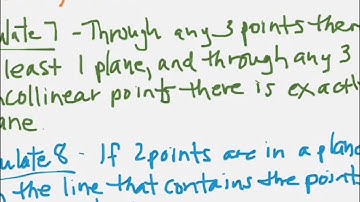 ulate 7 - Through any 3 points ther
least 1 plane, and through any 3
ncollinear points there is exactl
ane.
ulate 8 - If 2 points are in a plane
the line that contains the points